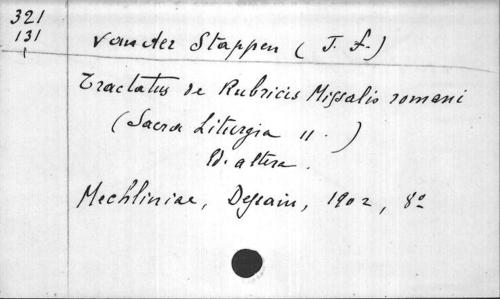 321
131
1
Vander Stappen (J. F.)
Tractatus de Rubricis Missalis romani
(Sacra Liturgia II.)
Ed. altera.
Mechliniae, Dessain, 1902, 8º